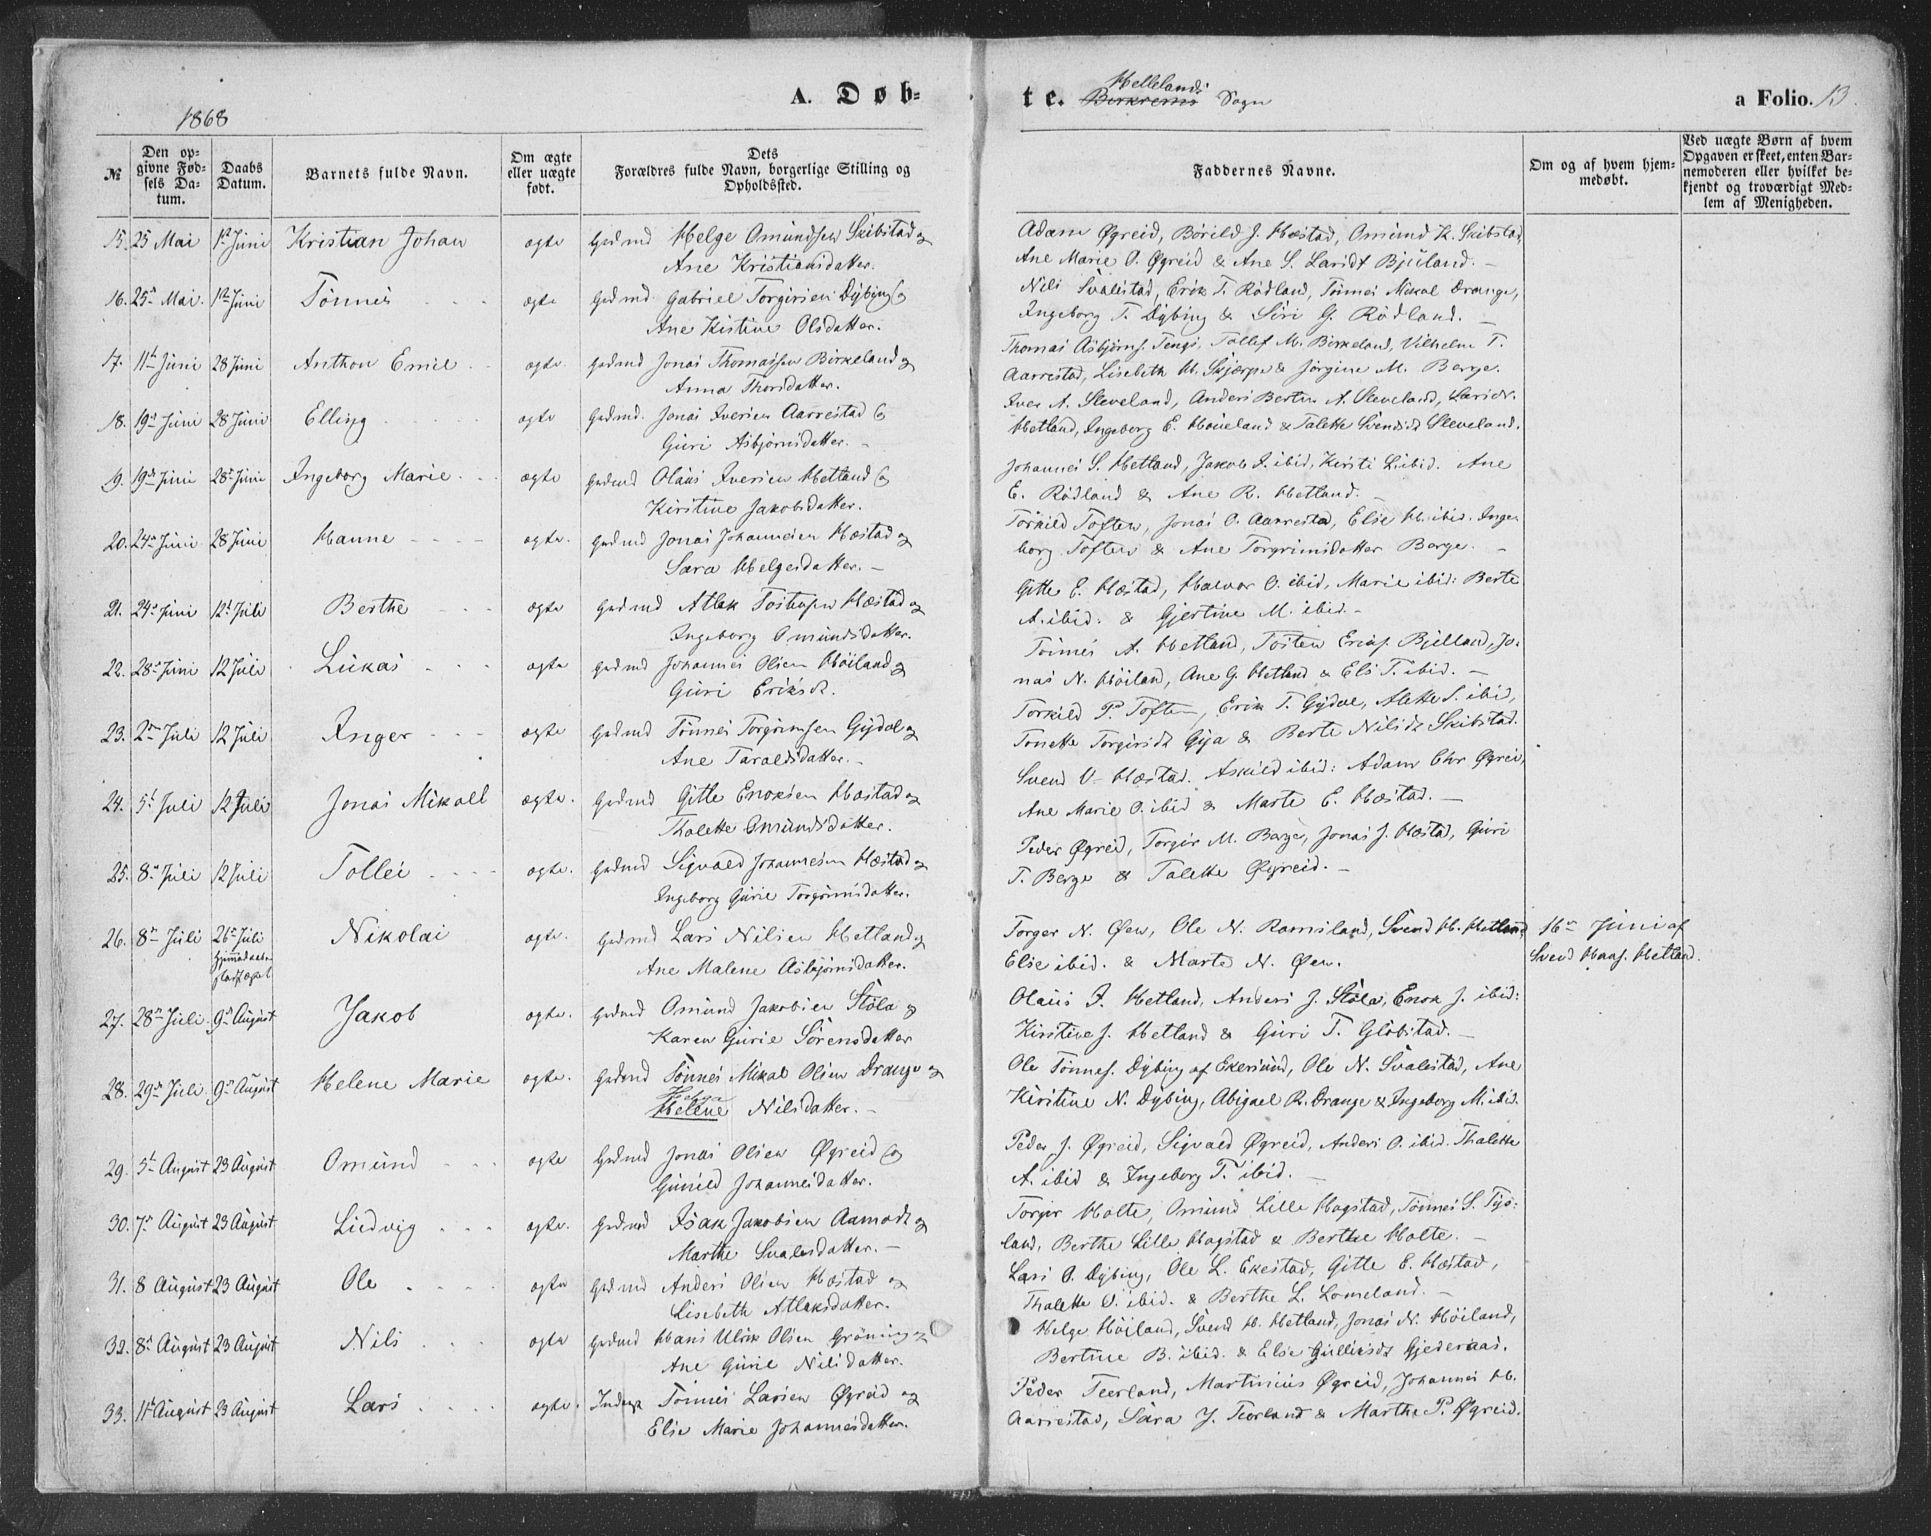 1868
A. Døb-
te.
Hellelands
Birkrems Sogn
a Folio. 13.
№
Den op-
givne Fød-
sels Da-
tum.
Daabs
Datum.
Barnets fulde Navn.
Om ægte
eller uægte
født.
Dets
Forældres fulde Navn, borgerlige Stilling og
Opholdssted.
Faddernes Navne.
Om og af hvem hjem-
medøbt.
Ved uægte Børn af hvem
Opgaven er skeet, enten Bar-
nemoderen eller hvilket be-
kjendt og troværdigt Med-
lem af Menigheden.
15. 25 Mai 1st Juni Kristian Johan ægte Gadmd Helge Omundsen Skibstad og
Ane Kristiansdatter.
Adam Øgreid, Børild J. Hæstad, Omund H. Skibstad,
Ane Marie O. Øgreid & Ane S. Laridt Bjuland.
16. 25 Mai. 1st Juni Tønnes ægte Gadmd. Gabriel Torgersen Dybing og
Ane Kistine Olsdatter.
Nils Svalestad, Erik T. Rødland, Tønnes Mikal Drange,
Ingeborg T. Dybing & Siri G. Rødland.
17. 11te Juni 28 Juni Anthon Emil ægte Gadmd Jonas Thomassen Birkeland og
Anna Thorsdatter.
Thomas Asbjørns. Tengs, Tollef M. Birkeland, Vilhelm T.
Aarrestad, Lisebeth H. Skjærpe & Jørgine M. Berge.
18. 19de Juni 28 Juni Elling ægte Gadmd. Jonas Iversen Aarrestad og
Guri Asbjørnsdatter.
Iver A. Sleveland, Anders Bertin A. Sleveland, Lars
Hetland, Ingeborg E. Houeland & Talette Svendsd Sleveland.
19. 19de Juni 28de Juni Ingeborg Marie ægte Gadmd Olaus Iversen Hetland og
Kirstine Jakobsdatter.
Johannes S. Hetland, Jakob I. ibid, Kirsti L. ibid. Ane
E. Rødland & Ane R. Hetland.
20. 24de Juni 28 Juni Hanne ægte. Gadmd Jonas Johannesen Hæstad og
Sara Helgesdatter.
Torkild Toften, Jonas O. Aarrestad, Else H. ibid. Inge-
borg Toften & Ane Torgrimsdatter Berge.
21. 24de Juni 12te Juli Berthe ægte Gadmd Atlak Tostensen Hæstad og
Ingeborg Omundsdatter.
Gitte E. Hæstad, Halvor O. ibid, Marie ibid: Berte
A. ibid. & Gjertine M. ibid.
22. 28de Juni 12 Juli Lukas ægte Gadmd Johannes Olsen Høiland og
Guri Eriksd.
Tønnes A. Hetland, Tosten Eriks. Bjelland, Jo-
nas N. Høiland, Ane G. Hetland & Els T. ibid.
23. 2den Juli 12 Juli Inger ægte Gadmd Tønnes Torgrimsen Gydal og
Ane Taraldsdatter.
Torkild P. Toften, Erik T. Gydal, Alette S. ibid,
Tonette Torgirsd Gya & Berte Nilsd Skibstad.
24. 5te Juli 12 Juli Jonas Mikall ægte. Gadmd Gitle Enoksen Hæstad og
Thalette Omundsdatter.
Svend V. Hæstad. Askild ibid: Adam Chr Øgreid,
Ane Marie O. ibid & Marte E. Hæstad.
25. 8de Juli 12 Juli Tollei ægte. Gadmd Sigvald Johannesen Hæstad og
Ingeborg Gurie Torgrimsdatter.
Peder Øgreid, Torger M. Berge, Jonas J. Hæstad, Guri
T. Berge & Talette Øgreid.
26. 8de Juli 26de Juli Nikolai ægte. Gadmd Lars Nilsen Hetland og
Ane Malene Asbjørnsdatter.
Torger N. Øen, Ole N. Ramsland, Svend H. Hetland
Else ibid. & Marte N. Øen.
16de Juni af
Svend Hans. Hetland.
27. 28de Juli. 9de August Jakob ægte. Gadmd Omund Jakobsen Støla og
Karen Gurie Sørensdatter
Olaus I. Hetland, Anders J. Støla, Enok J. ibid:
Kirstine J. Hetland & Guri T. Gløbstad.
28. 29de Juli. 9de August Helene Marie ægte. Gadmd Tønnes Mikal Olsen Drange og
Helene Nilsdatter.
Ole Tønnes. Dybing af Ekersund, Ole N. Svalestad, Ane
Kirstine N. Dybing, Abigael R. Drange & Ingeborg M. ibid.
29. 5te August 23 August Omund ægte Gadmd Jonas Olsen Øgreid og
Gunild Johannesdatter.
Peder J. Øgreid, Sigvald Øgreid, Anders O. ibid. Thalette
A. ibid & Ingeborg T. ibid.
30. 7de August 23 August Ludvig ægte. Gadmd Isak Jakobsen Aamodt og
Marthe Svalesdatter.
Torger Holte, Omund Lille Hagstad, Tønnes S. Tys-
land, Berthe Lille Hagstad & Berthe Holte.
31. 8 August 23 August Ole ægte Gadmd Anders Olsen Hæstad og
Lisebeth Atlaksdatter.
Lars O. Dybing, Ole L. Ekestad, Gitle E. Hæstad,
Thalette O. ibid. & Berthe L. Lomeland.
32. 8de August 23 August Nils ægte Gadmd Hans Ulrik Olsen Grøning og
Ane Gurie Nilsdatter.
Helge Høiland, Svend H. Hetland, Jonas N. Høiland,
Bertine B. ibid. & Else Gulliksd Gjedernas.
33. 11te August 23 August Lars ægte. Inders Tønnes Larsen Øgreid og
Else Marie Johannesdatter.
Peder Teerland, Martinius Øgreid, Johannes H.
Aarrestad, Sara J. Teerland & Marthe P. Øgreid.